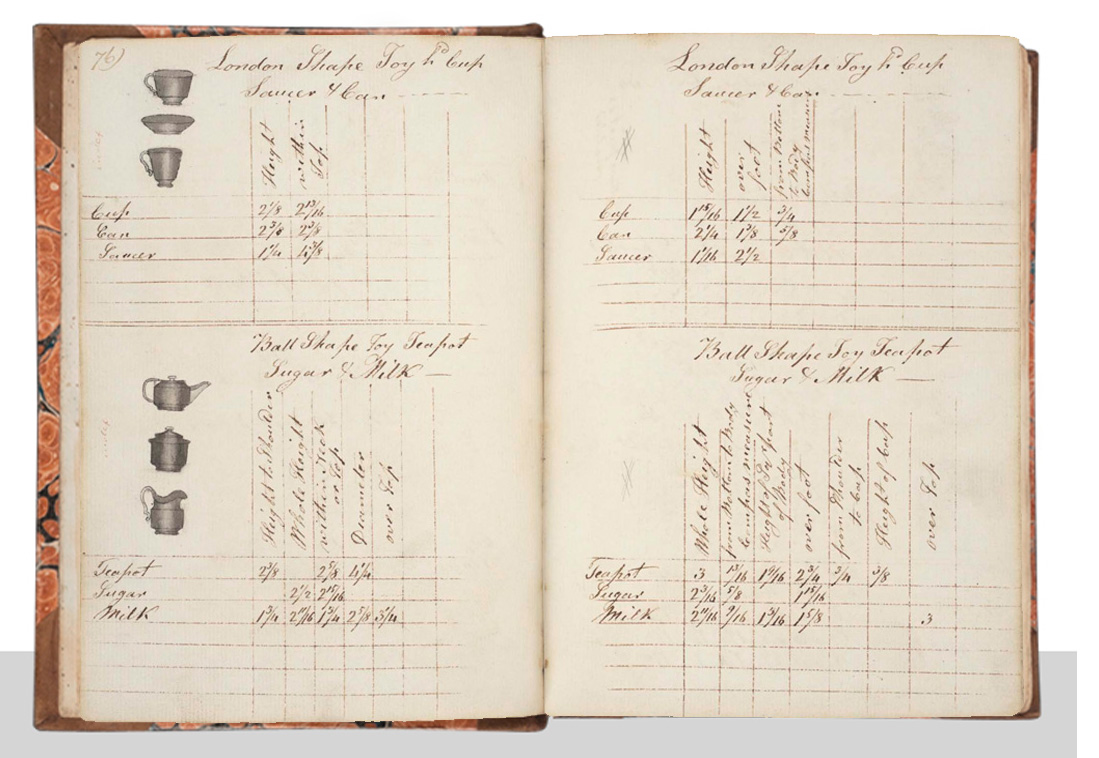 76)
London Shape Toy hd Cup
Saucer & Can
Height
within Top
Cup 2 1/8 2 13/16
Can 2 3/8 2 3/8
Saucer 1 1/4 4 3/8
Ball Shape Toy Teapot
Sugar & Milk
Height to Shoulder
Whole Height
within Neck or Top
Diameter
over Top
Teapot 2 3/8 2 5/8 4 1/4
Sugar 2 1/2 2 11/16
Milk 1 3/4 2 11/16 1 3/4 2 5/8 3 1/4
London Shape Toy hd Cup
Saucer & Can
Height
over foot
from Bottom to Body Compass measure
Cup 1 15/16 1 1/2 3/4
Can 2 1/4 1 3/8 5/8
Saucer 1 1/16 2 1/2
Ball Shape Toy Teapot
Sugar & Milk
Whole Height
from Bottom to Body Compass measure
Height of part of Body
over foot
from Shoulder to Cap
Height of Cap
over Top
Teapot 3 13/16 1 9/16 2 3/4 3/4 3/8
Sugar 2 3/16 5/8 1 15/16
Milk 2 11/16 9/16 1 3/16 1 5/8 3